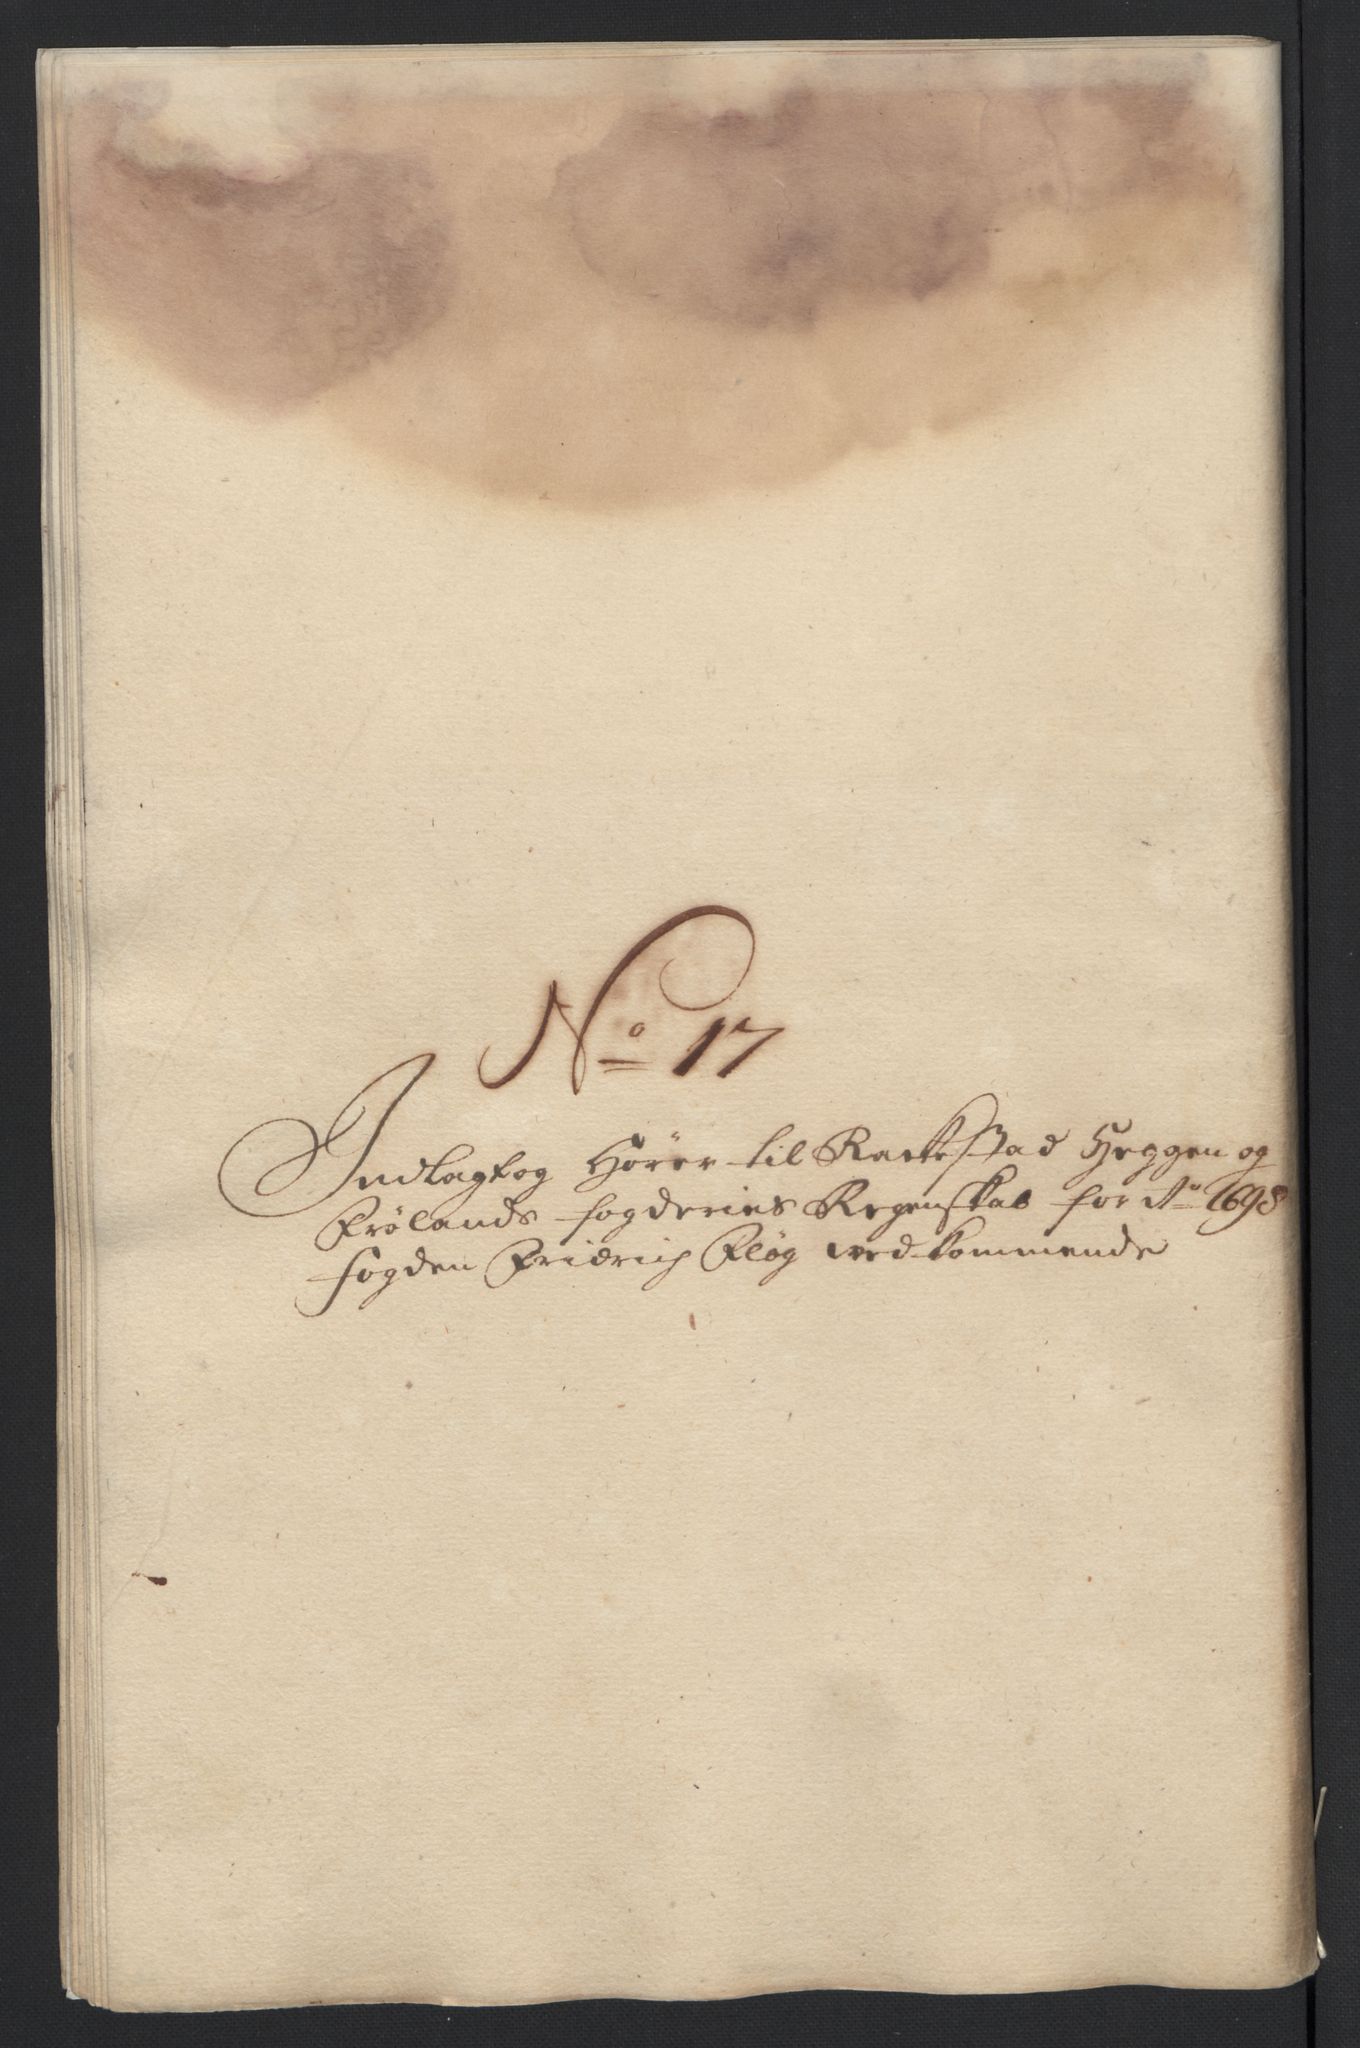 No 17
Indlagt og Hører til Rackestad Heggen og
Frølands fogderies Regenskab for Ao 1698
fogden Fridrich Fløg wedkommende